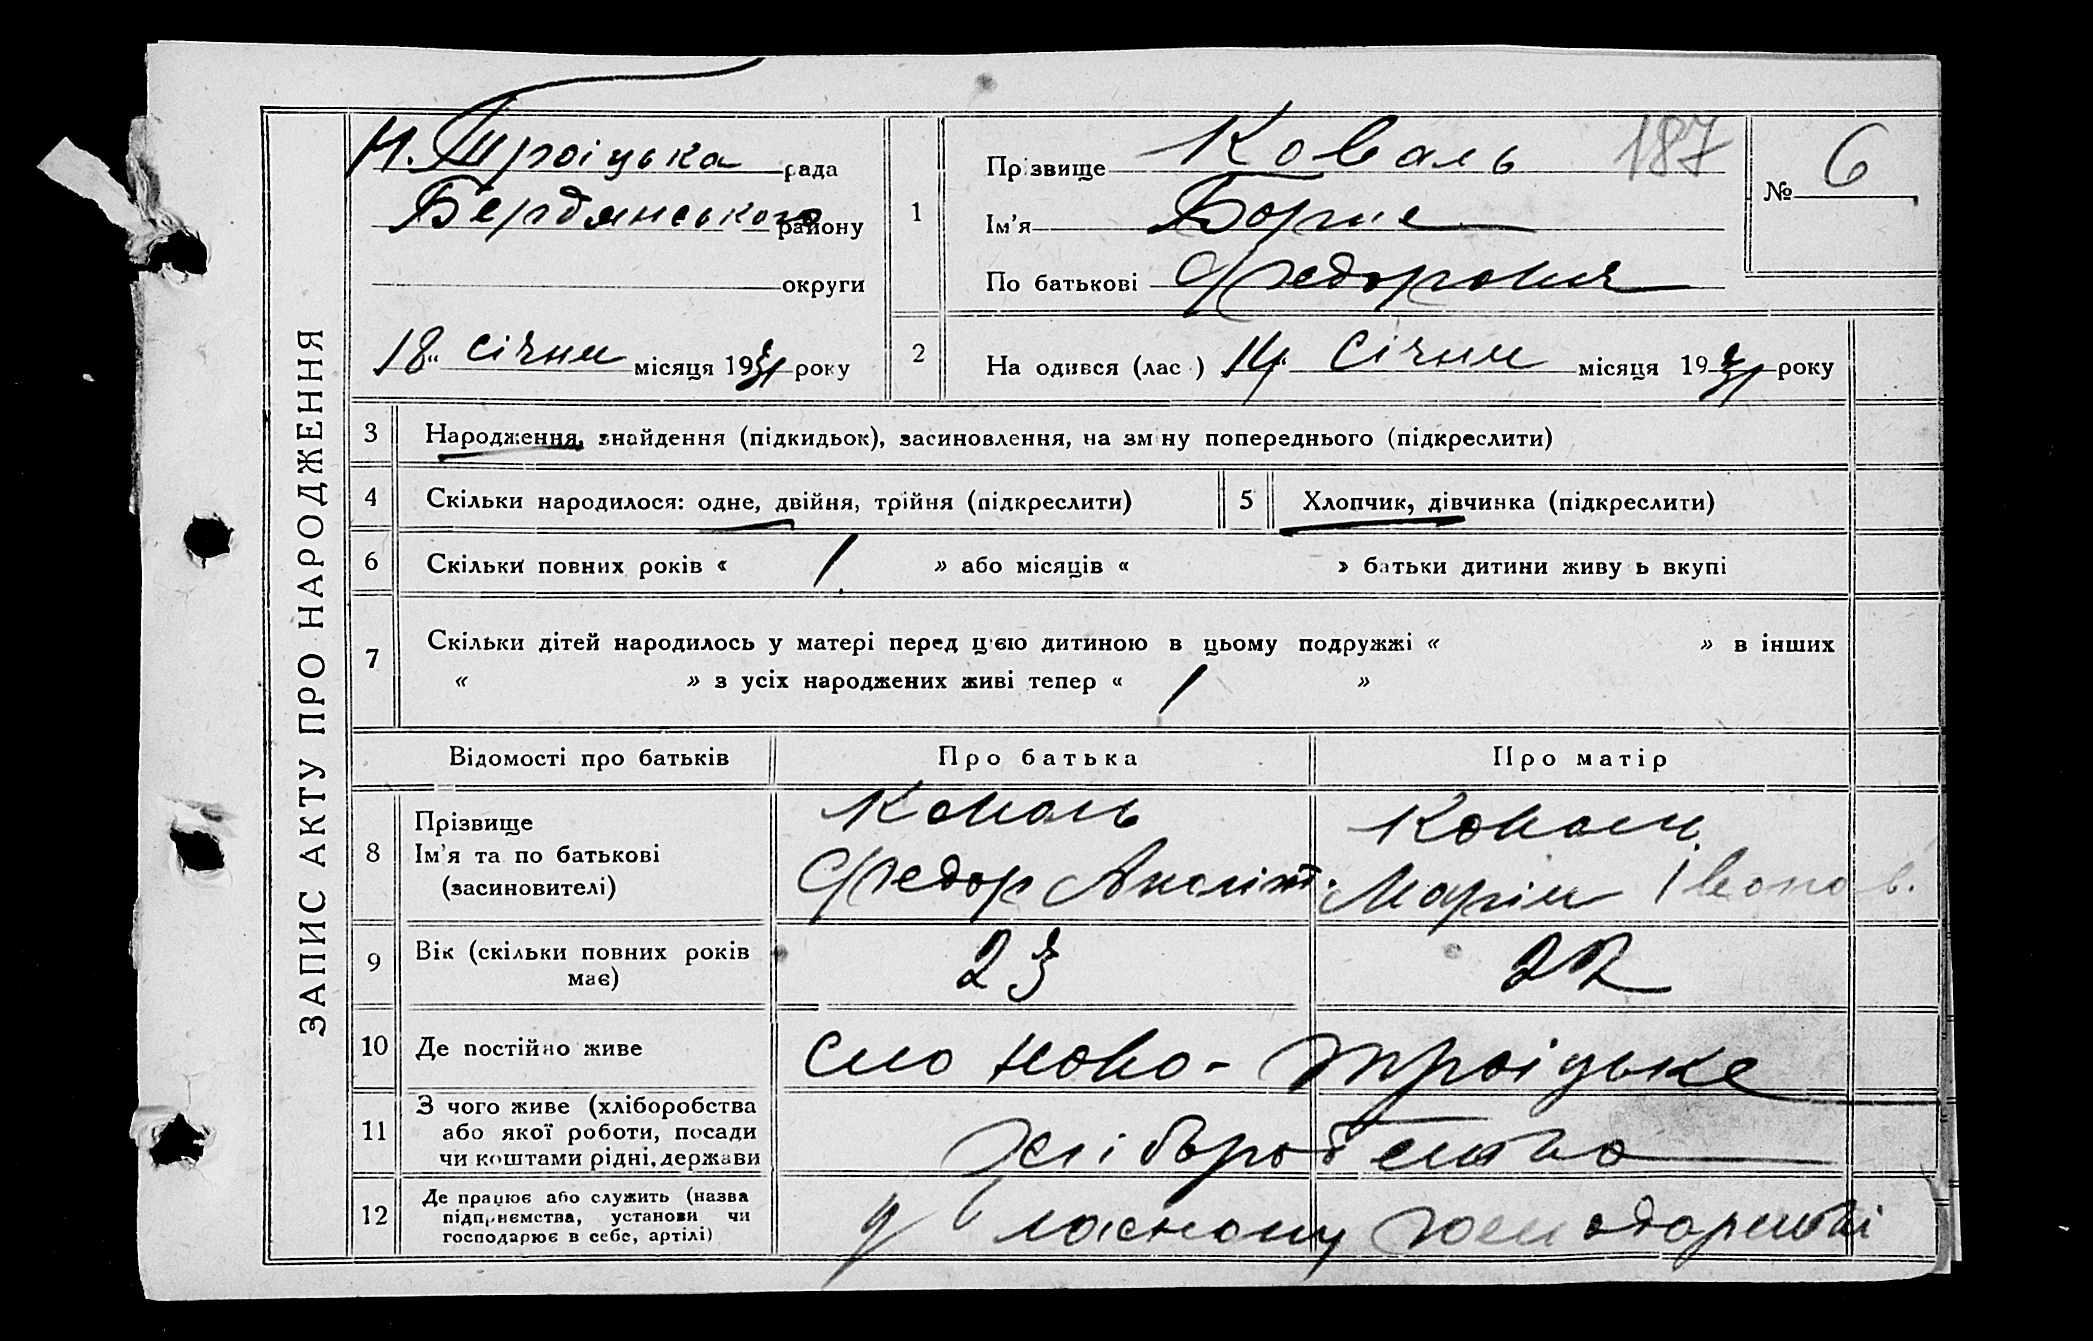 ЗАПИС АКТУ ПРО НАРОДЖЕННЯ
Н. Троіцька рада
Бердянського району
округи
18 " січня місяця 1931 року
1
Прізвище Коваль 187
Ім'я Борис
По батькові Федорович
№ 6
2
На одився (лас ) 14 " Січня місяця 1931 року
3 Народження, знайдення (підкидьок), засиновлення, на зміну попереднього (підкреслити)
4 Скільки народилося: одне, двійня, трійня (підкреслити)
5 Хлопчик, дівчинка (підкреслити)
6 Скільки повних років « 1 » або місяців « » батьки дитини живу ь вкупі
7 Скільки дітей народилось у матері перед цією дитиною в цьому подружжі « » в інших
« » з усіх народжених живі тепер « 1 »
Відомості про батьків Про батька Про матір
8
Прізвище
Ім'я та по батькові
(засиновителі)
Коваль
Федор
Коваль
Марія Іванов.
9
Вік (скільки повних років
має)
23 22
10 Де постійно живе село Ново-Троіцьке
11
З чого живе (хліборобства
або якої роботи, посади
чи коштами рідні, держави
хліборобство
12
Де працює або служить (назва
підприємства, установи чи
господарює в себе, артілі)
у власному господарстві